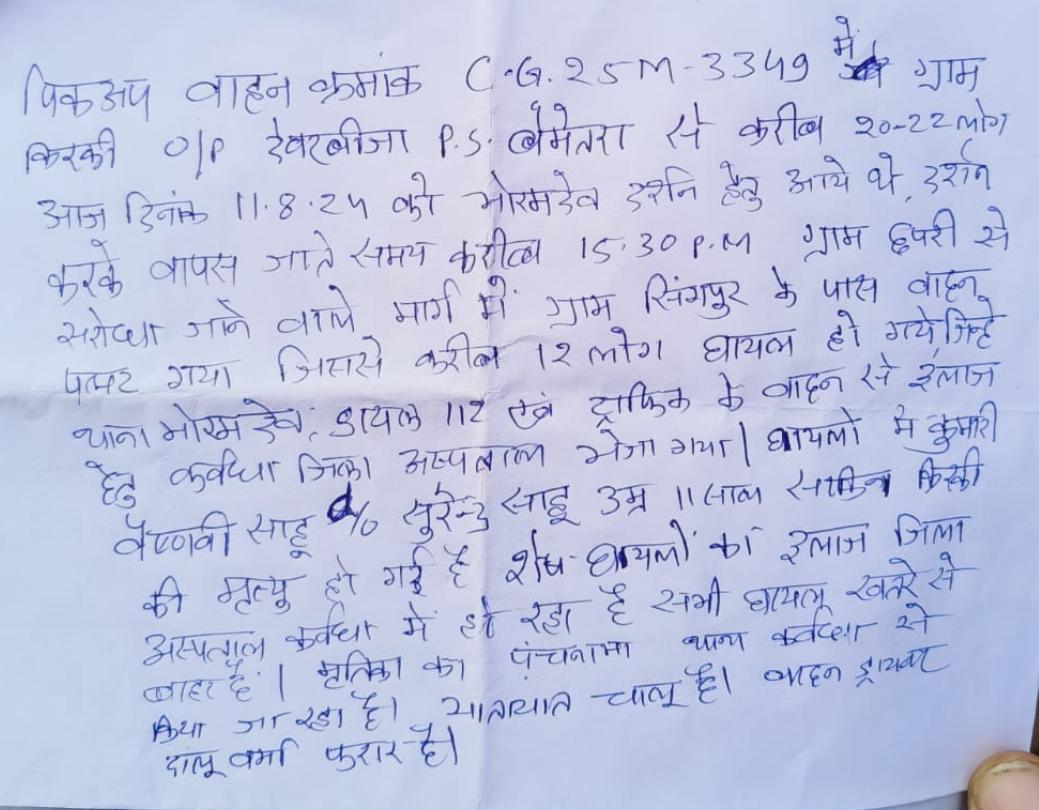 पिकअप वाहन क्रमांक C.G.25M-3349 में ग्राम
किरकी O/P देवरबीजा P.S. बेमेतरा से करीब 20-22 लोग
आज दिनांक 11.8.24 को भोरमदेव दर्शन हेतु आये थे, दर्शन
करके वापस जाते समय करीब 15.30 P.M ग्राम छपरी से
सरोधा जाने वाले मार्ग में ग्राम सिंगपुर के पास वाहन
पलट गया जिससे करीब 12 लोग घायल हो गये जिन्हे
थाना भोरमदेव, डायल 112 एवं ट्राफिक के वाहन से ईलाज
हेतु कर्वधा जिला अस्पताल भेजा गया| घायलो मे कुमारी
वैष्णवी साहू d/o सुरेन्द्र साहू उम्र 11 साल साकिन किरकी
की मृत्यु हो गई है शेष घायलों का ईलाज जिला
अस्पताल कर्वधा में हो रहा है सभी घायल खतरे से
बाहर है| मृतिका का पंचनामा थाना कर्वधा से
किया जा रहा है। यातायात चालू है। वाहन ड्रायवर
दालू वर्मा फरार है।